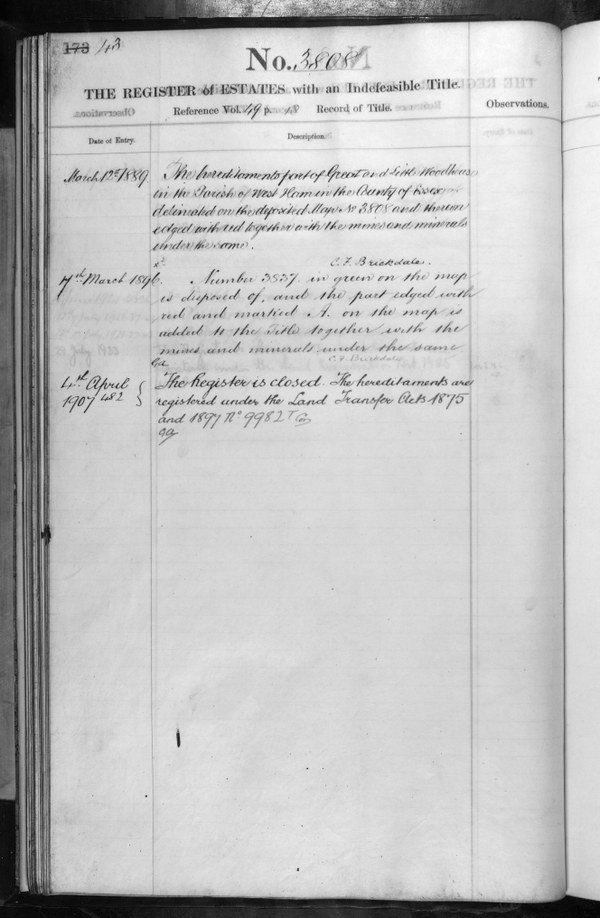 173 43
No. 3808
THE REGISTER of ESTATES with an Indefeasible Title.
Reference Vol. 49 p. 18 Record of Title.
Observations.
Date of Entry.
Description.
March 12th 1889.
The hereditaments part of Great and Little Woodhouse
in the Parish of West Ham in the County of Essex
delineated on the deposited Map No 3808 and thereon
edged with red together with the mines and minerals
under the same.
C. F. Brickdale.
7th March 1896.
Number 3837 in green on the map
is disposed of, and the part edged with
red and marked A. on the map is
added to the Title together with the
mines and minerals under the same
C. F. Brickdale
4th April
1907 482
The Register is closed. The hereditaments are
registered under the Land Transfer Acts 1875
and 1897 No 9982